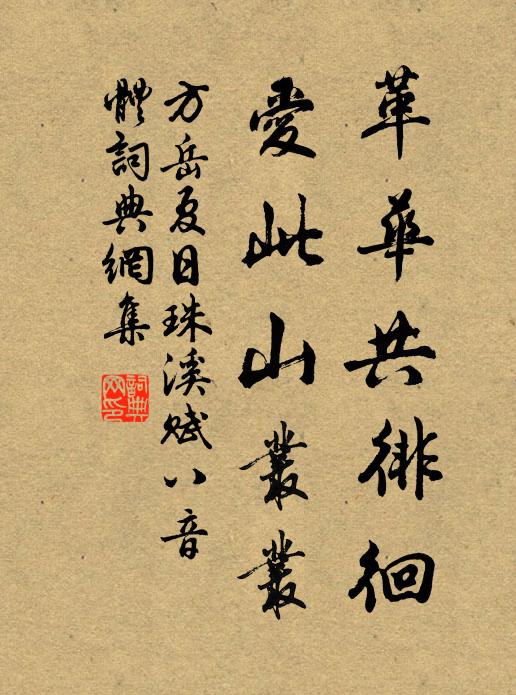 革華共徘徊
愛此山叢叢
方岳夏日珠溪賦八音
體詞典網集
詞典網印